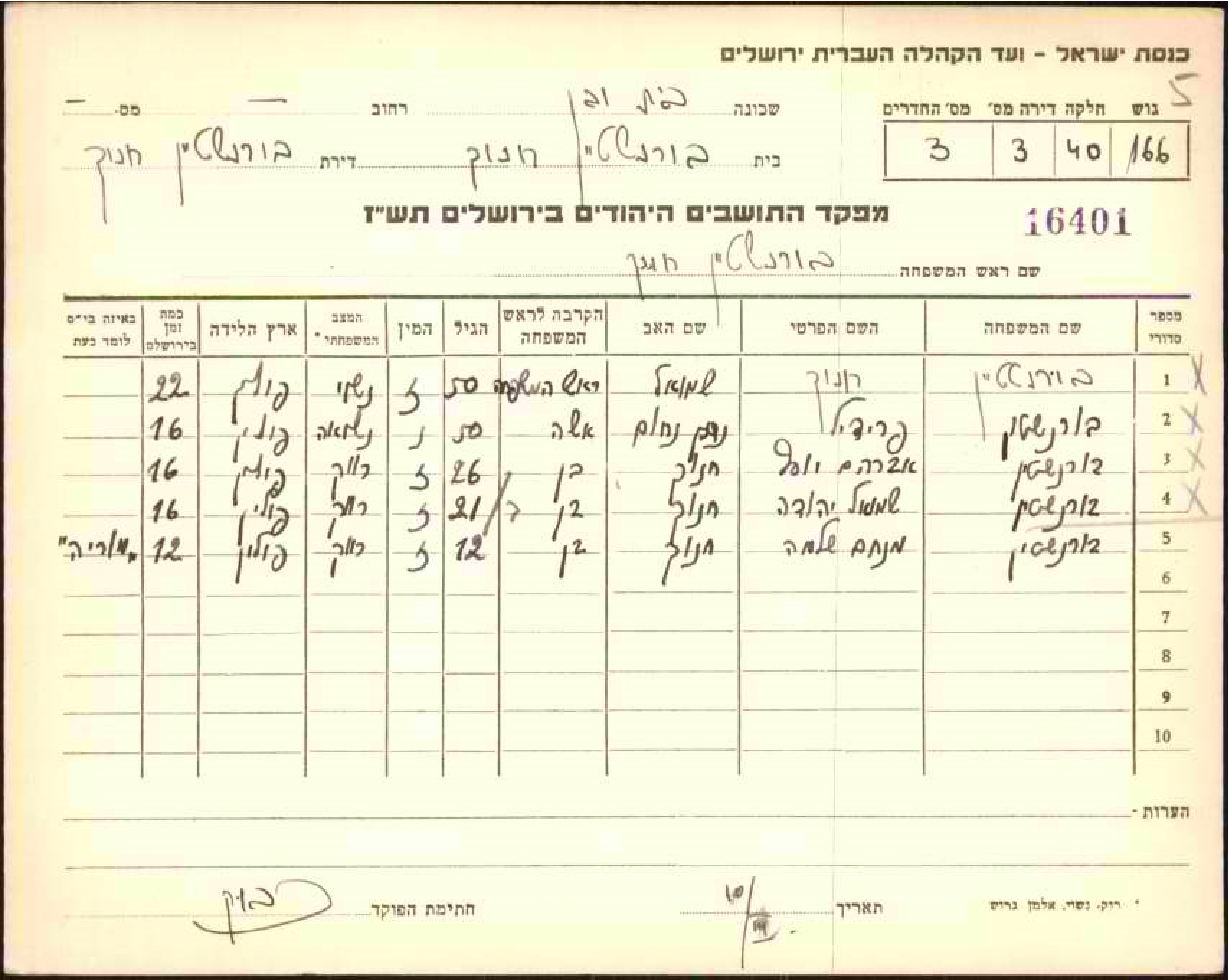 כנסת ישראל - ועד הקהלה העברית ירושלים
5
גוש חלקה דירה מס' מס' החדרים
166 40 3 3
שכונה בית וגן רחוב — מס. —
בית בורנשטיין חנוך דירת בורנשטיין חנוך
מפקד התושבים היהודים בירושלים תש"ז
16401
שם ראש המשפחה בורנשטיין חנוך
מספר סדורי שם המשפחה השם הפרטי שם האב הקרבה לראש המשפחה הגיל המין המצב המשפחתי * ארץ הלידה כמה זמן בירושלם באיזה בי"ס לומד כעת
1 בורנשטיין חנוך שמואל ראש המשפחה 50 ז נשוי פולין 22
2 בורנשטין פרידיל נחום אשה 50 נ נשואה פולין 16
3 בורנשטין אברהם חנוך בן 26 ז רווק פולין 16
4 בורנשטין שמואל יהודה חנוך בן 21 ז רווק פולין 16
5 בורנשטין מנחם שלמה חנוך בן 12 ז רווק פולין 12 "מוריה"
6
7
8
9
10
הערות -
* רוק, נשוי, אלמן גרוש תאריך 10/III חתימת הפוקד